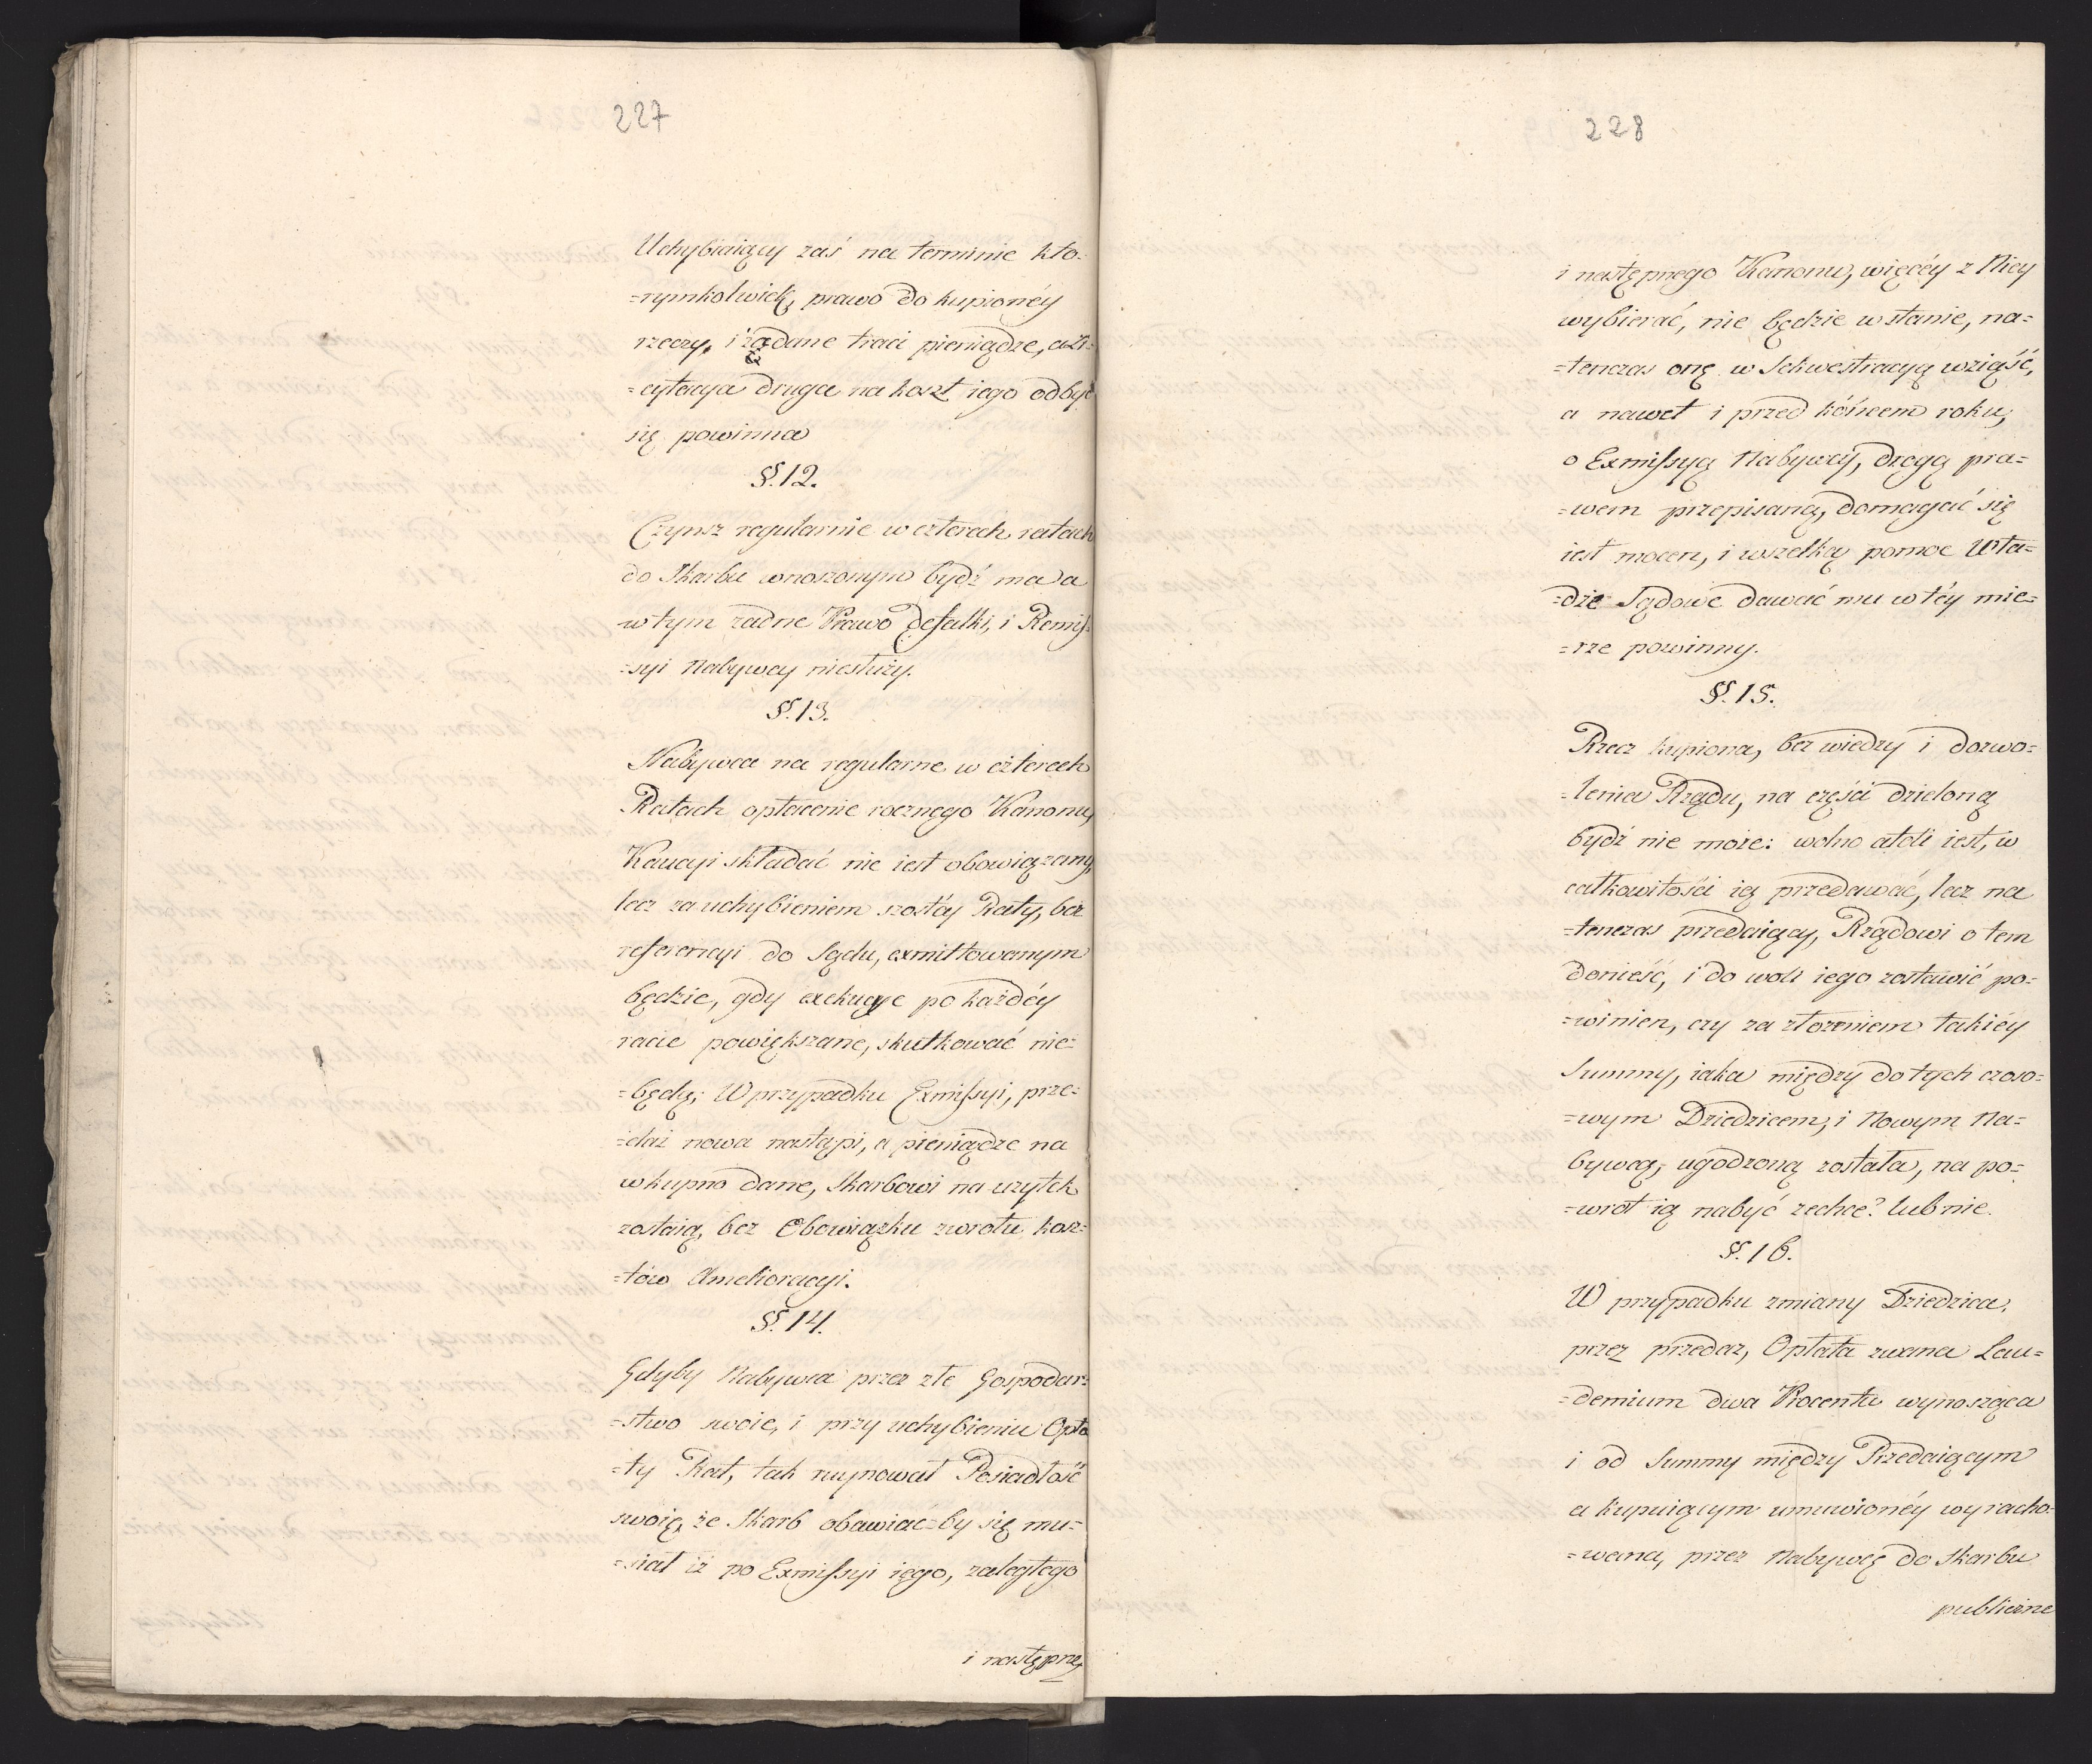 227
Uchybiaiący zaś na terminie kto-
=rymkolwiek, prawo do kupionéy
rzeczy, i zadane traci pieniądze, a Li=
=cytacya druga na koszt iego odbyć
się powinna
§. 12.
Czynsz regularnie w czterech ratach
do Skarbu wnoszonym bydź ma a
w tym zadne Prawo defalki, i Remis-
=syi Nabywcy niesłuzy.
§. 13.
Nabywca na regularne w czterech
Ratach opłacenie rocznego Kanonu,
Kaucyi składać nie iest obowiązany,
lecz za uchybieniem szostéy Raty, bez
referencyi do Sądu, exmittowanym
będzie, gdy exekucye po każdéy
racie powiększane, skutkować nie=
=będą; W przypadku Exmissyi, prze=
=daż nowa nastąpi, a pieniądze na
wkupno dane, Skarbowi na uzytek
zostaią, bez Obowiązku zwrotu kosz=
=tów Amelioracyi.
§. 14.
Gdyby Nabywca przez złe Gospodar=
=stwo swoie, i przy uchybieniu Opła
=ty Rat, tak ruynował Posiadłość
swoię, że Skarb obawiać=by się mu=
=siał iż po Exmissyi iego, zaległego
i następne
228
i następnego Kanonu, więcéy z Niey
wybierać, nie będzie w stanie, na=
=tenczas onę w Sekwestracyą wziąść,
a nawet i przed końcem roku,
o Exmissyą Nabywcy, drogą pra=
=wem przepisaną, domagać się
iest mocen, i wszelką pomoc Wła=
=dze Sądowe dawać mu w téy mie=
=rze powinny.
§. 15.
Rzecz kupiona, bez wiedzy i dozwo=
=lenia Rządu, na części dzieloną
bydź nie może: wolno atoli iest, w
całkowitości ią przedawać, lecz na
=tenczas przedaiący, Rządowi o tem
donieść, i do woli iego zostawić po=
=winien, czy za złożeniem takiéy
Summy, iaka między dotych czaso=
=wym Dziedzicem, i Nowym Na=
bywcą, ugodzoną została, na po=
=wrot ią nabyć zechce? lub nie.
§. 16.
W przypadku zmiany Dziedzica,
przez przedaz, Opłata zwana Lau=
=demium dwa Procenta wynosząca
i od Summy między Przedaiącym
a kupuiącym umuwionéy wyracho=
=wana, przez Nabywcę do Skarbu
publiczne